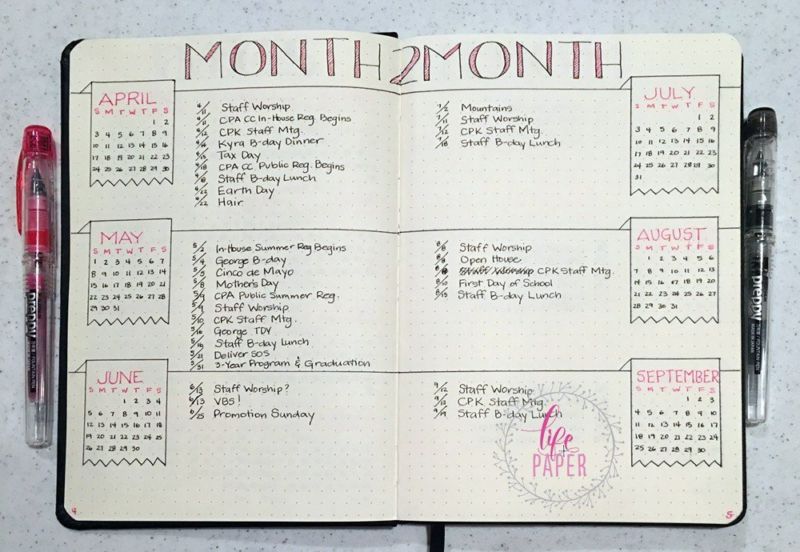 MONTH 2 MONTH
APRIL
S M T W T F S
1 2
3 4 5 6 7 8 9
10 11 12 13 14 15 16
17 18 19 20 21 22 23
24 25 26 27 28 29 30
Staff Worship
4/11 CPA CC In-House Reg. Begins
4/12 CPK Staff Mtg.
Kyra B-day Dinner
4/15 Tax Day
4/18 CPA CC Public Reg. Begins
Staff B-day Lunch
4/22 Earth Day
4/22 Hair
MAY
S M T W T F S
1 2 3 4 5 6 7
8 9 10 11 12 13 14
15 16 17 18 19 20 21
22 23 24 25 26 27 28
29 30 31
5/2 In-House Summer Reg Begins
5/4 George B-day
5/5 Cinco de Mayo
5/8 Mother's Day
5/9 CPA Public Summer Reg.
5/9 Staff Worship
5/10 CPK Staff Mtg.
5/16 George TDY
Staff B-day Lunch
5/21 Deliver SOS
3-Year Program & Graduation
JUNE
S M T W T F S
1 2 3 4
5 6 7 8 9 10 11
12 13 14 15 16 17 18
19 20 21 22 23 24 25
26 27 28 29 30
6/13 Staff Worship?
6/13 VBS!
6/25 Promotion Sunday
4
JULY
S M T W T F S
1 2
3 4 5 6 7 8 9
10 11 12 13 14 15 16
17 18 19 20 21 22 23
24 25 26 27 28 29 30
31
7/2 Mountains
7/11 Staff Worship
7/12 CPK Staff Mtg.
7/18 Staff B-day Lunch
AUGUST
S M T W T F S
1 2 3 4 5 6
7 8 9 10 11 12 13
14 15 16 17 18 19 20
21 22 23 24 25 26 27
28 29 30 31
8/8 Staff Worship
Open House
Staff Worship CPK Staff Mtg.
8/10 First Day of School
8/15 Staff B-day Lunch
SEPTEMBER
S M T W T F S
1 2 3
4 5 6 7 8 9 10
11 12 13 14 15 16 17
18 19 20 21 22 23 24
25 26 27 28 29 30
9/12 Staff Worship
9/13 CPK Staff Mtg.
9/19 Staff B-day Lunch
life
PAPER
5
preppy
preppy